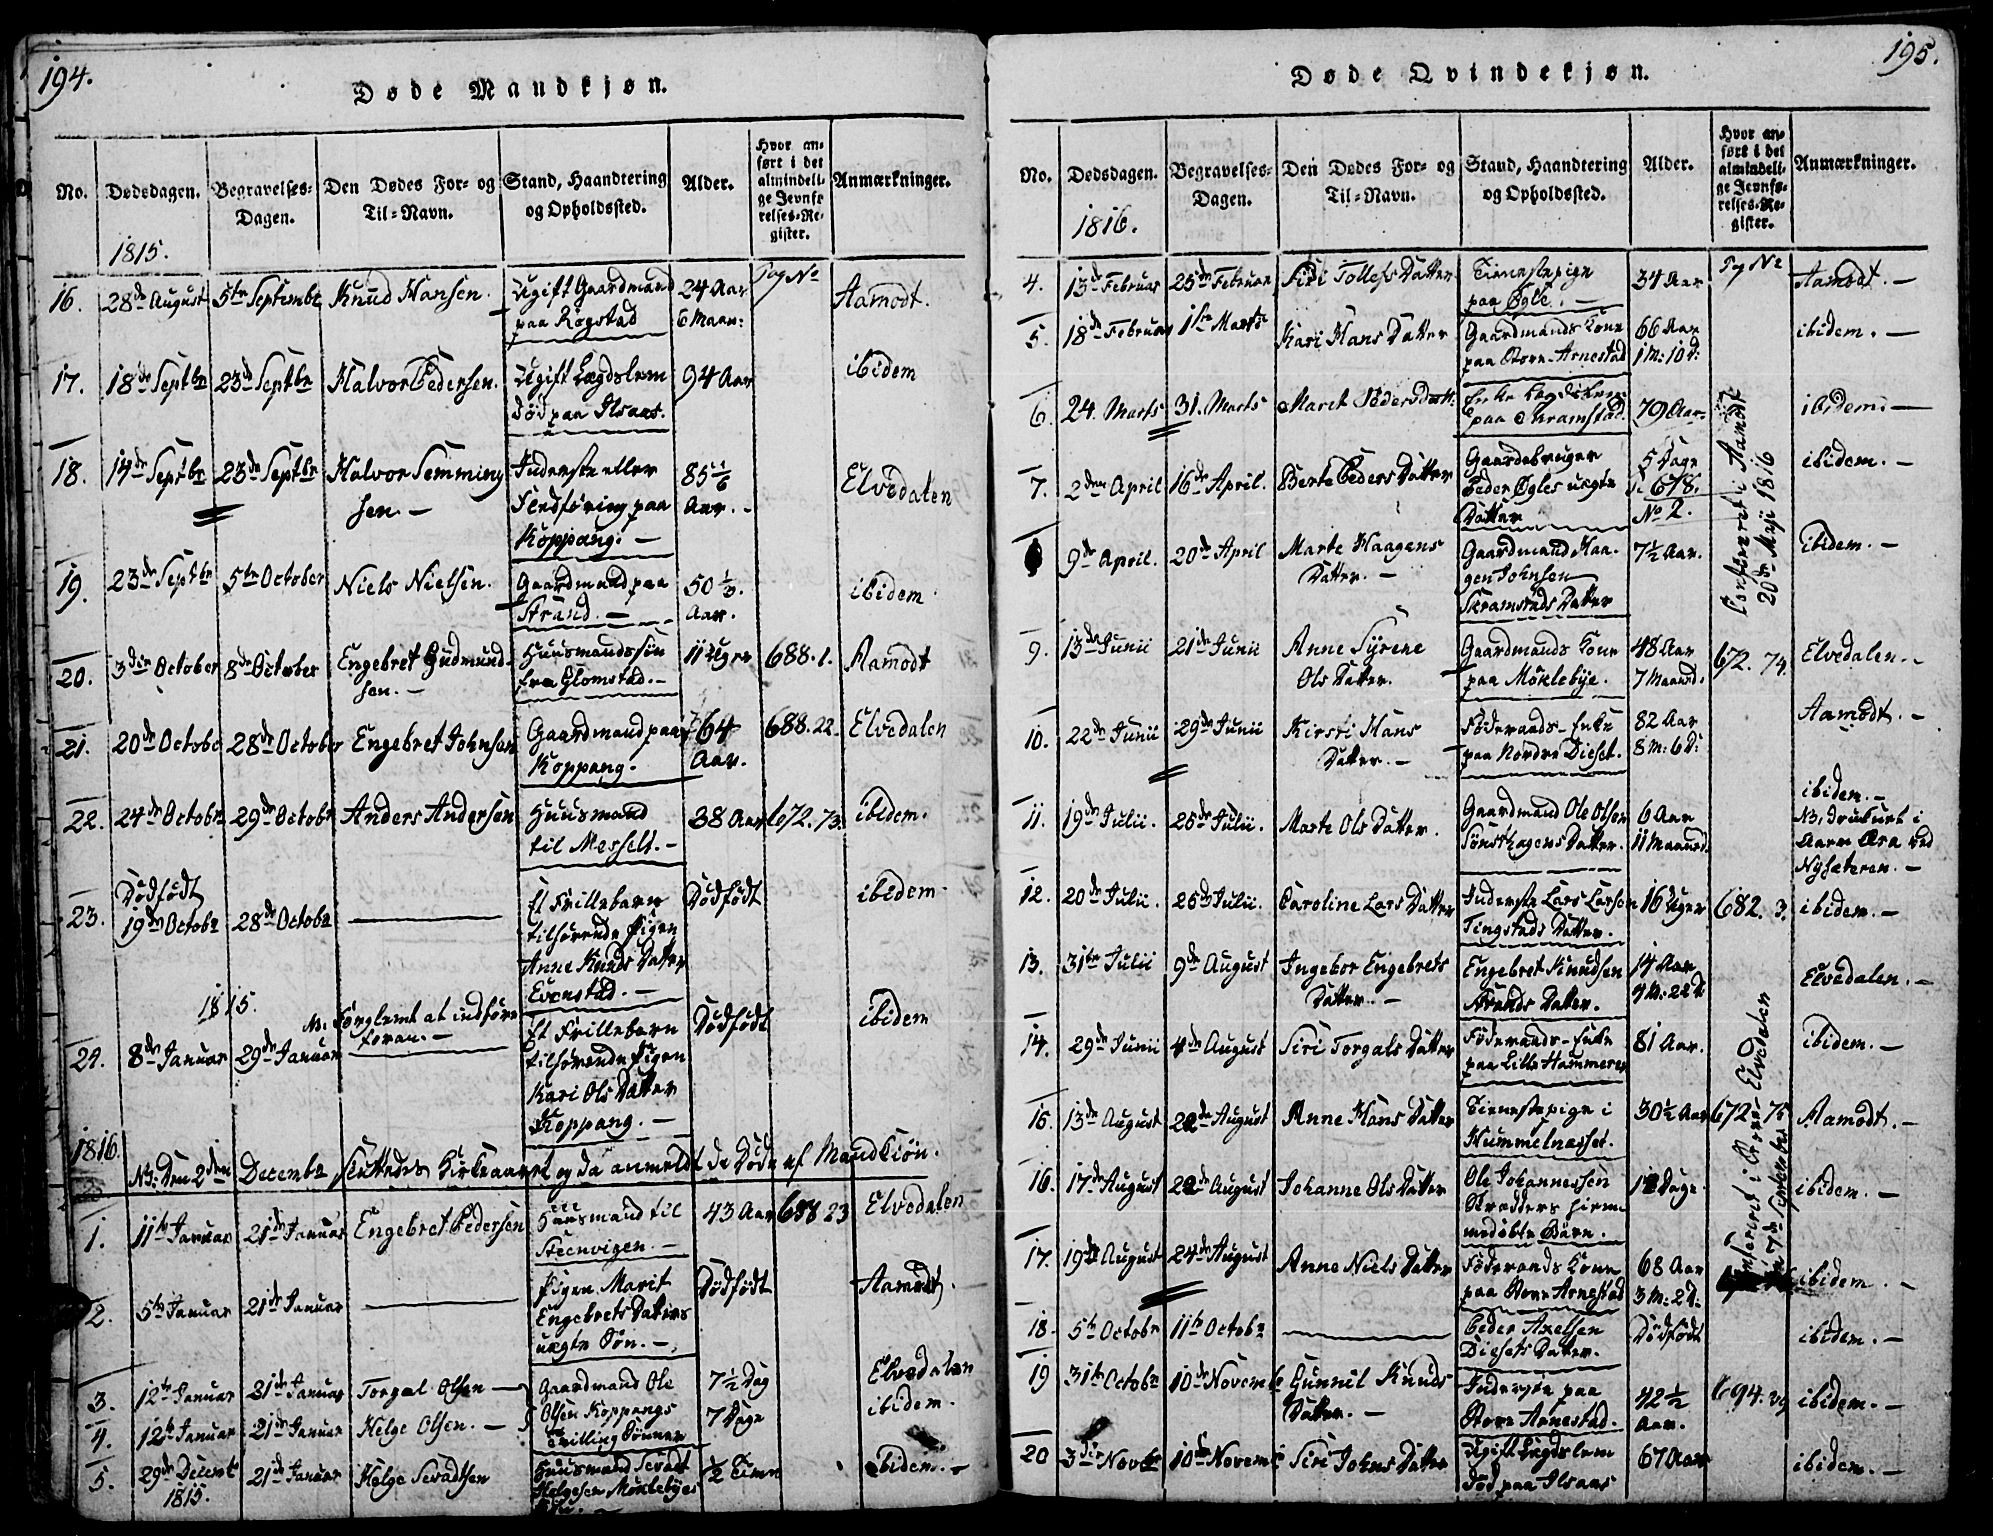 194.
Døde Mandkjøn.
No. Dødsdagen. Begravelses-Dagen. Den Dødes For- og Til-Navn. Stand, Haandtering og Opholdssted. Alder. Hvor anført i det almindelige Jevnførelses-Register. Anmærkninger.
1815.
Pag No
16. 28de August 5te Septembr Knud Hansen. Ugift Gaardmand paa Rogstad 24 Aar 6 Maan: Aamodt.
17. 18de Septbr 23de Septbr Halvor Pedersen. Ugift Lægdslem død paa Ilsaas. 94 Aar ibidem
18. 14de Septbr 23de Septbr Halvor Semmingsen. — Inderste eller Koppang. — 85 1/6 Aar. - Elvedalen
19. 23de Septbr 5te October Niels Nielsen. Gaardmand paa Strand. — 50 1/3. Aar. ibidem.
20. 3die October 8de October Engebret Gudmundsen. — Huusmandssøn fra Glomstad. — 11 Uger 688. 1. Aamodt
21. 20de Octobr 28de October Engebret Johnsen Gaardmand paa Koppang. 64 Aar. 688. 22. Elvedalen
22. 24de Octobr 29de Octobr Anders Andersen Huusmand til Messelt. — 38 Aar 672. 73. ibidem.
23. Dødfødt 19de Octobr 28de Octobr — Et Frillebarn tilhørende Pigen Anne Knuds Datter Evenstad. — Dødfødt ibidem
1815. NB: Forglemt at indføre foran. —
24. 8de Januar 29de Januar Et Frillebarn tilhørende Pigen Kari Ols Datter Koppang. — Dødfødt ibidem
1816. NB: Den 2den Decembr sluttedes Kirkeaaret og da anmeldt de Døde af Mandkiøn.
1. 11te Januar 21de Januar Engebret Pedersen Huusmand til Steenvigen. — 43 Aar 688 23 Elvedalen
2. 5te Januar 21de Januar — Pigen Marit Engebrets Datters uægte Søn. —, Dødfødt Aamodt.
3. 12te Januar 21de Januar Torgal Olsen — Gaardmand Ole Olsen Koppangs Tvilling Sønner 7 1/2 Dag Elvedalen
4. 12te Januar 21de Januar Helge Olsen. — 7 Dage ibidem.
5. 29de Decembr 1815. 21de Januar Helge Sevadtsen Huusmand Sevadt Helgesen Møklebyes 1/2 Time ibidem. —
195.
Døde Qvindekjøn.
No. Dødsdagen. Begravelses-Dagen. Den Dødes For- og Til-Navn. Stand, Haandtering og Opholdssted. Alder. Hvor anført i det almindelige Jevnførelses-Register. Anmærkninger.
1816.
Pag No
4. 13de Februar 25de Februar Siri Tollefs Datter Tienestepige paa Øgle. — 34 Aar Aamodt. —
5. 18de Februar 1ste Marts Kari Hans Datter Gaardmands Kone paa Store-Arnestad 66 Aar 1 M: 10 D: ibidem. —
6. 24. Marts 31. Marts Marit Peders Datt: Enke Lægdslem paa Skramstad. 79 Aar. ibidem. —
7. 2den April 16de April. Berte Peders Datter Gaardbruger Peder Øgles uægte Datter 5 Dage 678. No 2. ibidem. —
9de April. 20de April Marte Haagens Datter. — Gaardmand Haagen Johnsen Skramstads Datter 7 1/2 Aar. ibidem. —
Confereret i Aamodt 20de Maji 1816
9. 13de Junii 21de Junii Anne Syrene Ols Datter. Gaardmands Kone paa Møklebye. 48 Aar 7 Maaned. 672. 74. Elvedalen. -
10. 22de Junii 29de Junii Kirsti Hans Datter. — Føderaads-Enke paa Nordre Dieset. 82 Aar 8 M: 6 D: Aamodt. —
11. 19de Julii. 28de Julii. Marte Ols Datter. Gaardmand Ole Olsen Sønsthagens Datter. 6 Aar 11 Maaned. ibidem. — NB, druknet i Aaen Øsa ved Nysæteren. —
12. 20de Julii 26de Julii. Caroline Lars Datter Inderste Lars Larsen Tingstads Datter. 16 Uger 682. 3. ibidem. —
13. 31te Julii 9de August Ingebor Engebrets Datter. — Engebret Knudsen Strands Datter. 14 Aar 4 M: 22 D Elvedalen. —
14. 29de Junii 4de August Siri Torgals Datter Føderaads-Enke paa Lille Hammeren 81 Aar. ibidem. —
15. 13de August 22de August Anne Hans Datter Tienestepige i Hummelnæsset. 30 1/2 Aar 672. 75 Aamodt. —
16. 17de August 22de August Johanne Ols Datter Ole Johannessen Skredders Barn. 12 Dage ibidem. —
17. 19de August 24de August Anne Niels Datter Føderaads Kone paa Store Arnestad 68 Aar 3 M: 2 D: ibidem. —
Confereret i Øvre-Elvedalen den 7de September
18. 5te Octobr 11te Octobr — Peder Axelsen Diesets Datter. Dødfødt ibidem. —
19 31te Octobr 10de Novemb Gunnil Knuds Datter. — Inderste paa Store Arnestad. 42 1/2 Aar. 694. 29 ibidem. —
20 3die Novbr 10de Novemb Siri Johns Datter Ugift Lægdslem død paa Ilsaas 67 Aar ibidem. —